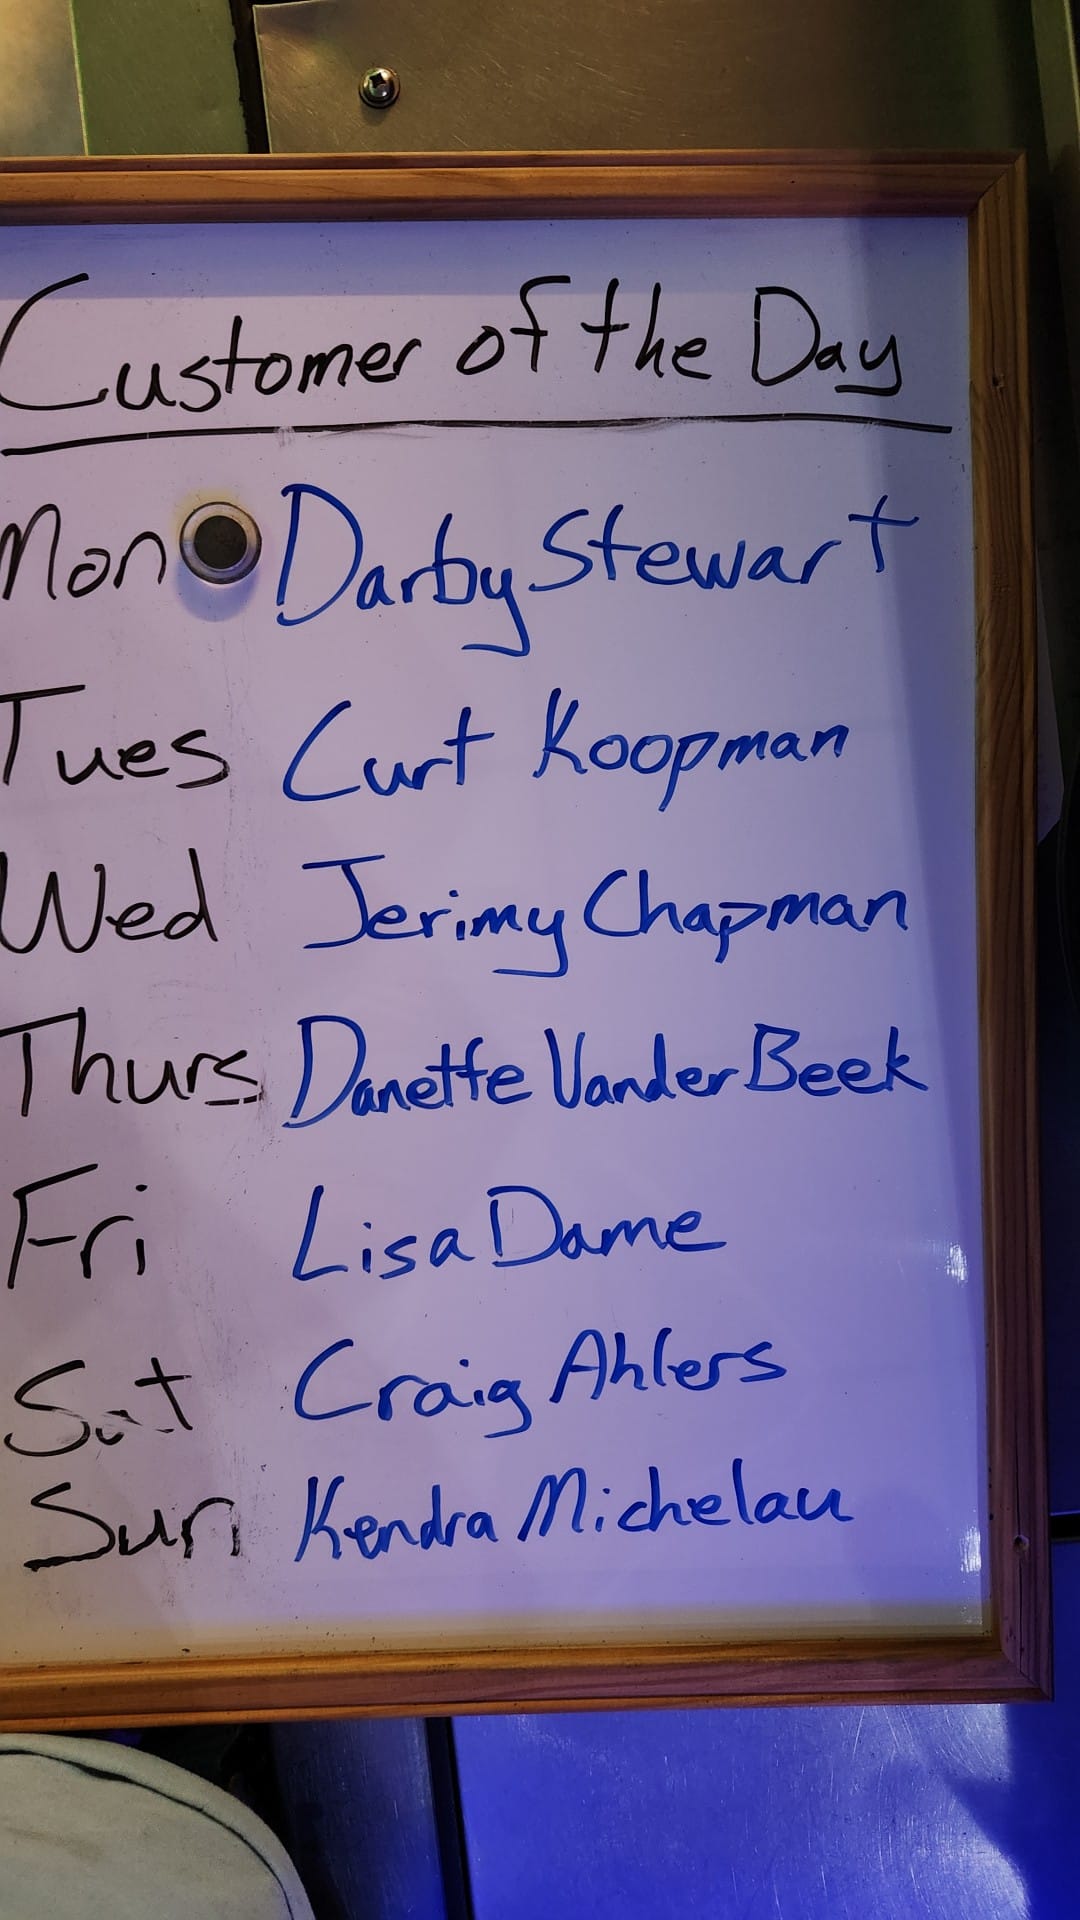 Customer of the Day
Mon Darby Stewart
Tues Curt Koopman
Wed Jerimy Chapman
Thurs Danette Vander Beek
Fri Lisa Dame
Sat Craig Ahlers
Sun Kendra Michelau